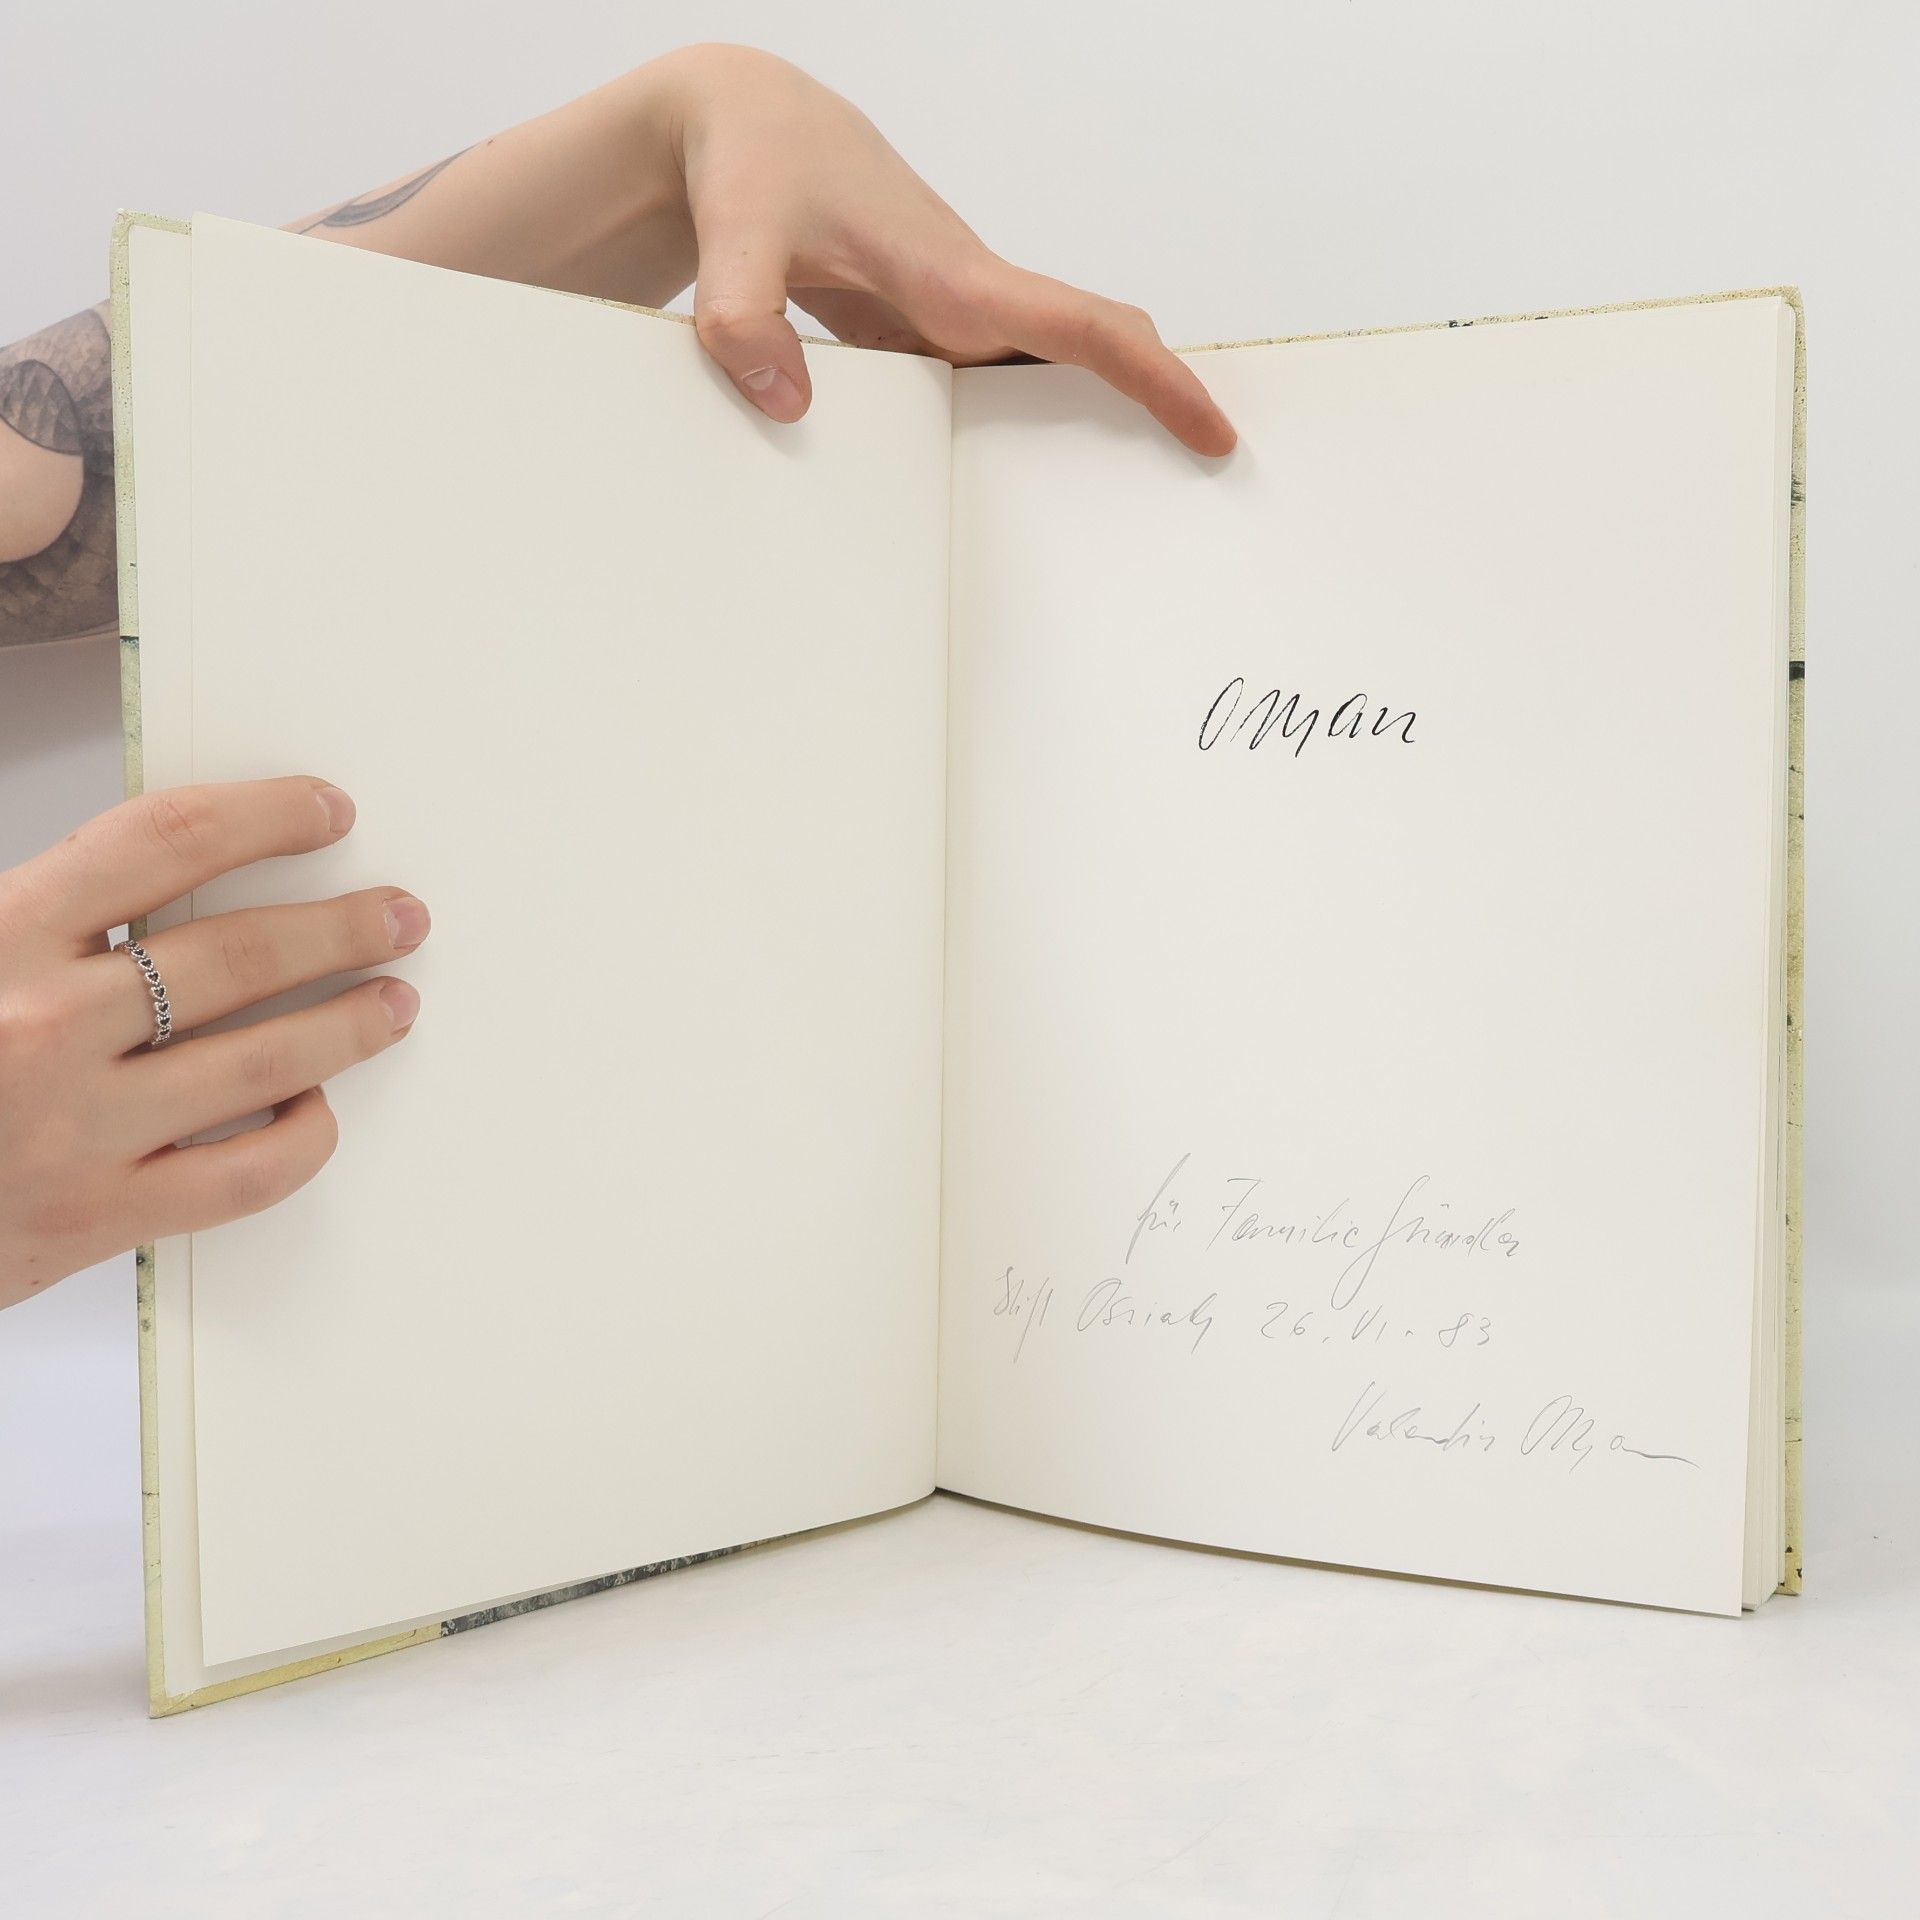 Oman
für Familie Gründler
Stift Ossiach 26. VI. 83
Valentin Oman